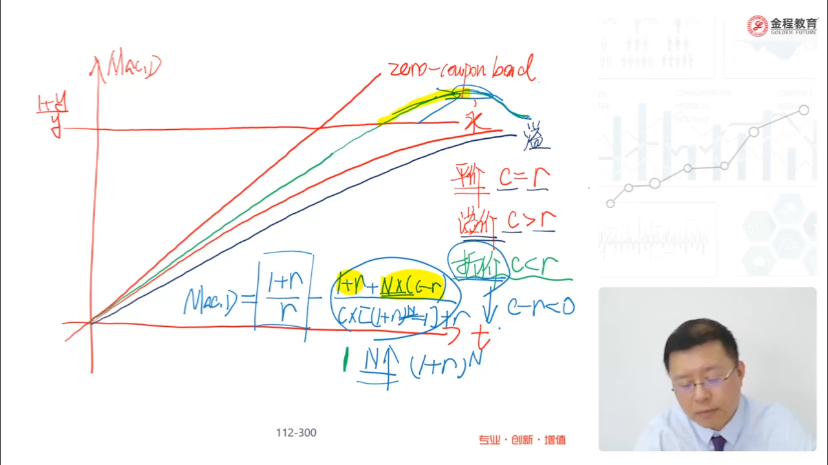 金程教育
GOLDEN FUTURE
Mac.D
zero-coupon bond
1+y
y
永
溢
平价 c=r
溢价 c>r
折价 c<r
c-r<0
Mac.D = 1+r / r - 1+r+N×(c-r) / c×[(1+r)^N-1]+r
t
N↑ (1+r)^N
112-300
专业·创新·增值